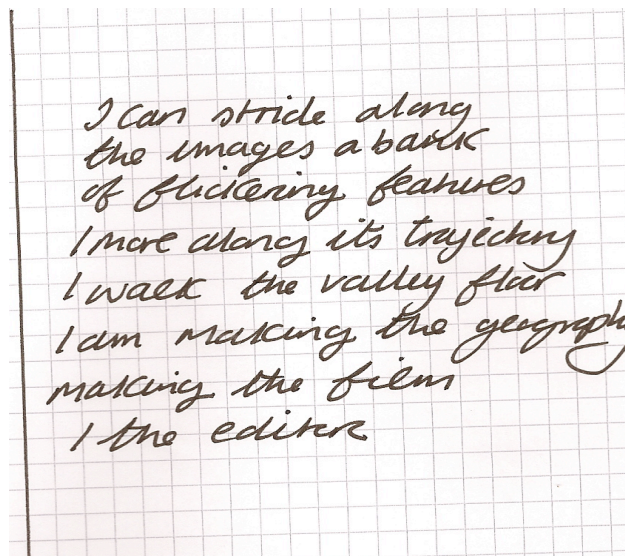 I can stride along
the images a bank
of flickering features
I move along its trajectory
I walk the valley floor
I am making the geography
making the film
I the editor